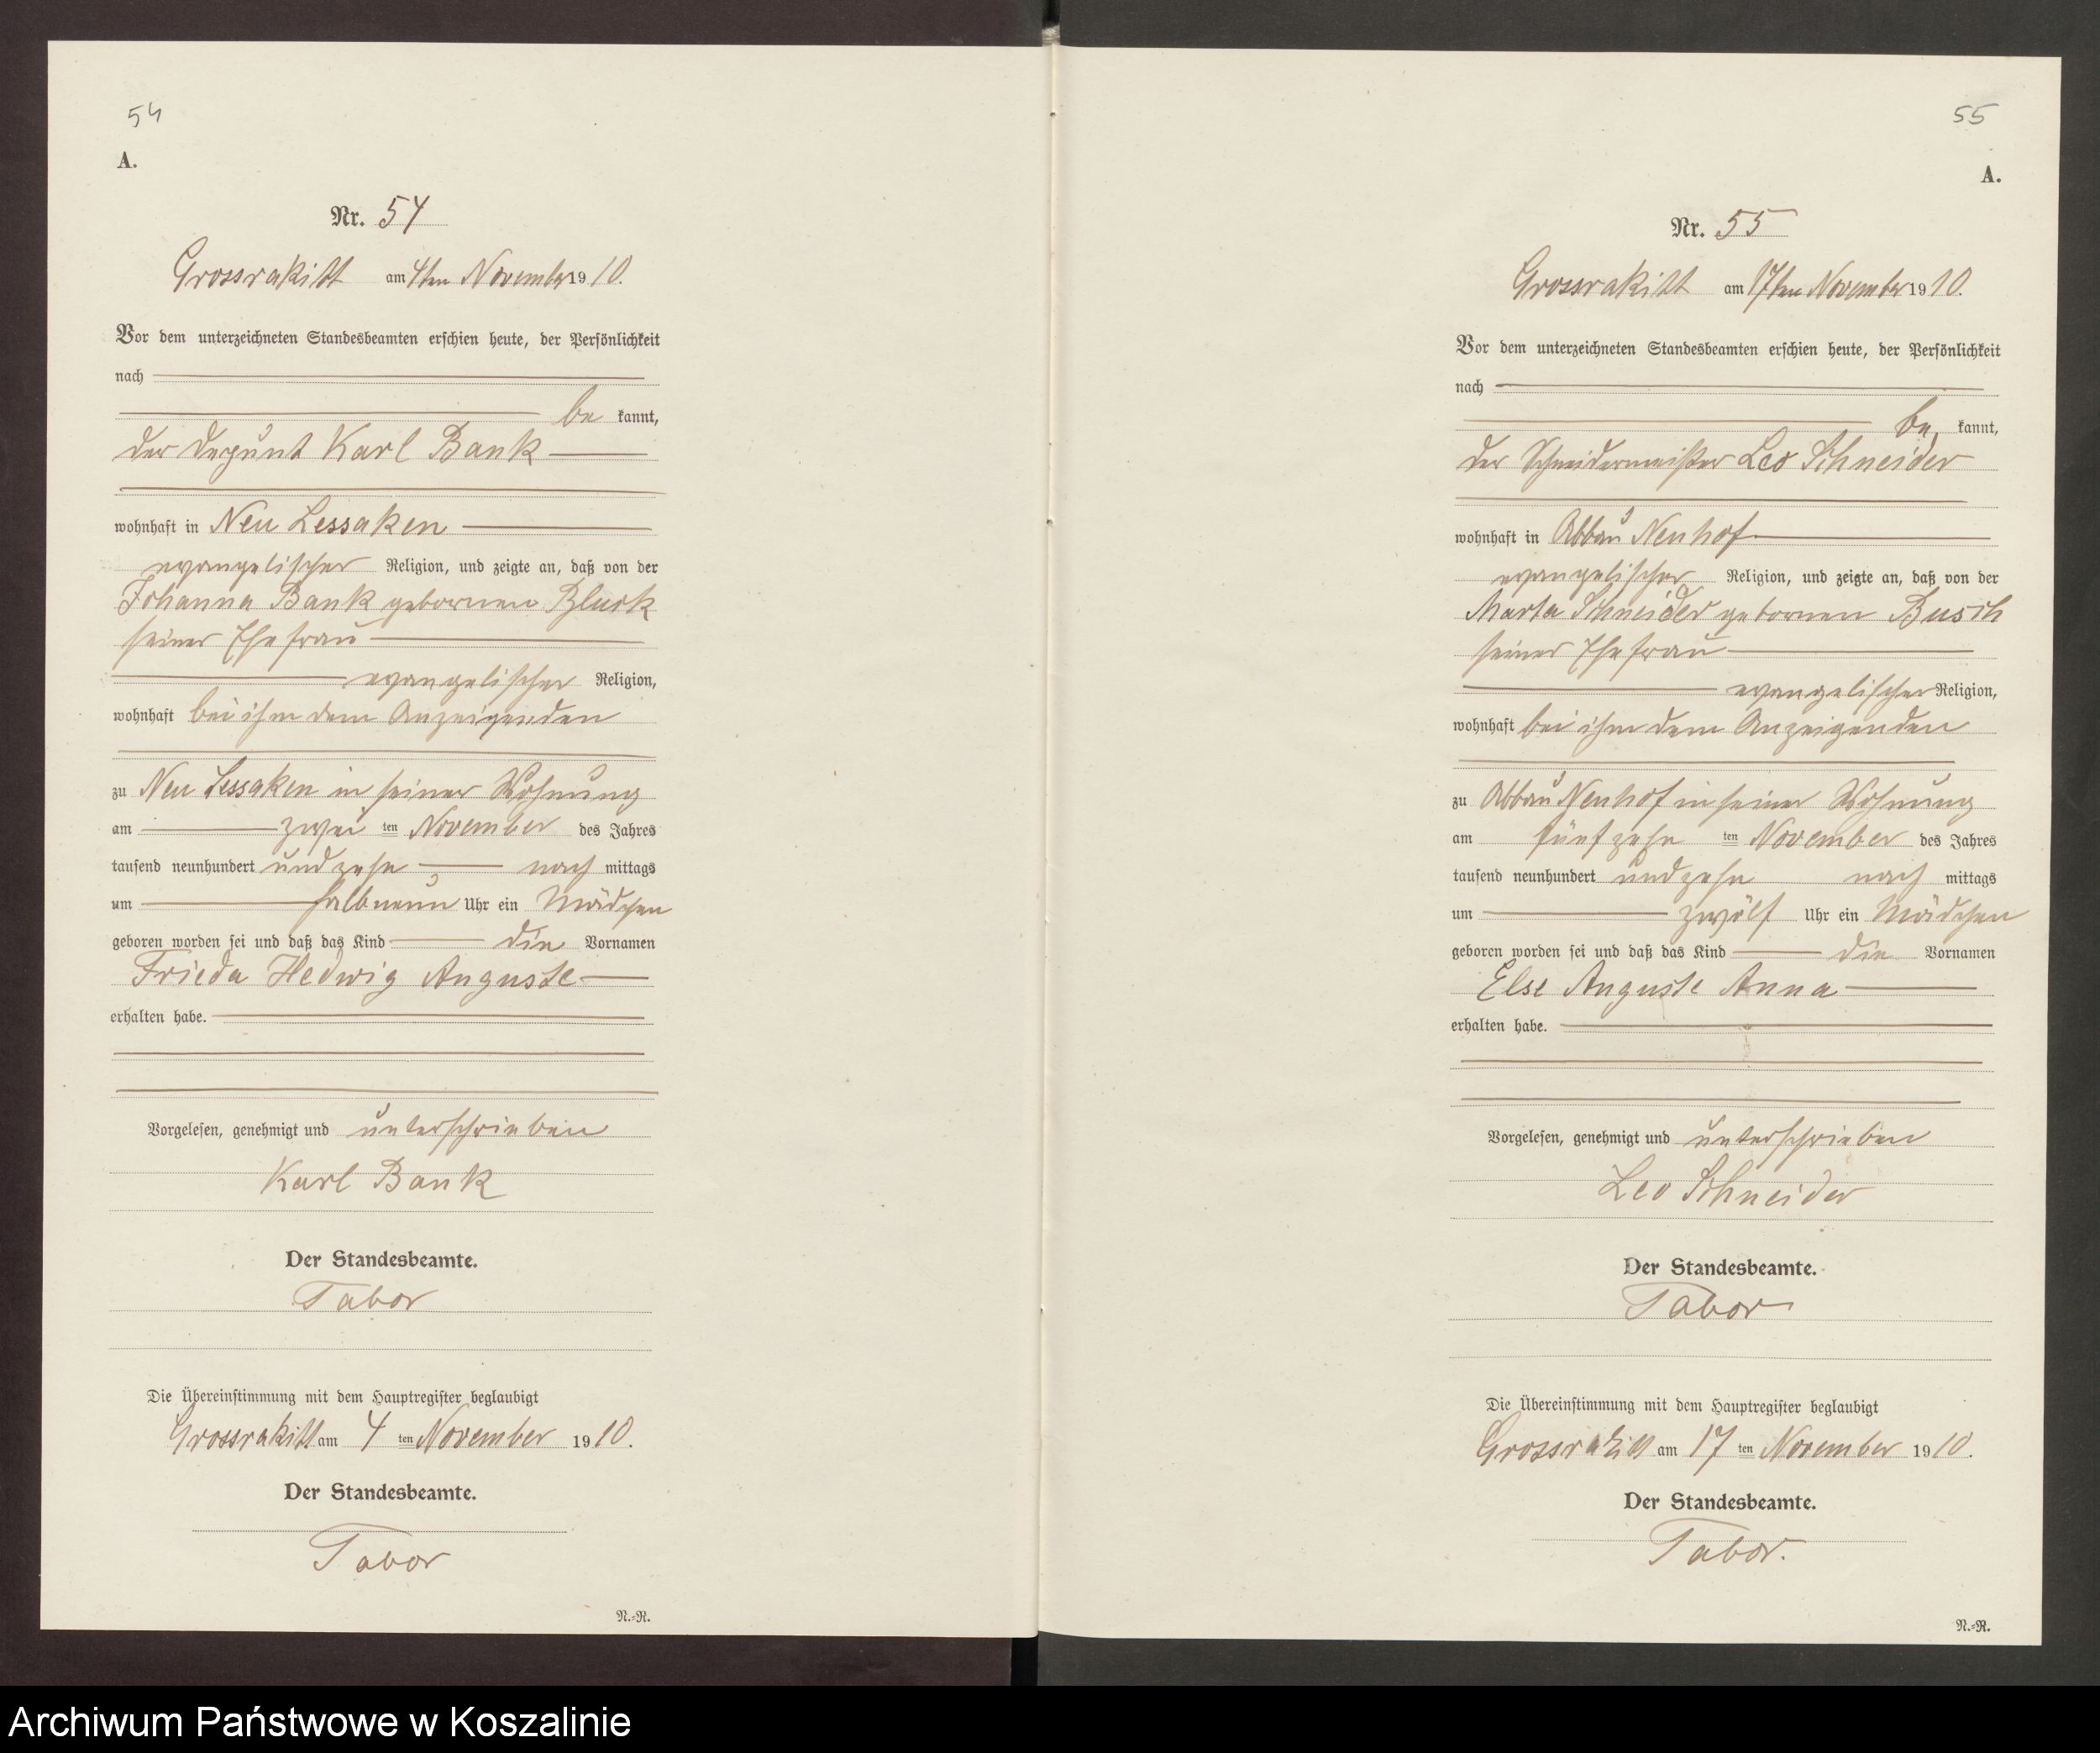 54
A.
Nr. 54
Grossrakitt am 4ten November 1910.
Vor dem unterzeichneten Standesbeamten erschien heute, der Persönlichkeit
nach
be kannt,
der Deputant Karl Bank
wohnhaft in Neu Lessaken
evangelischer Religion, und zeigte an, daß von der
Johanna Bank gebornen
seiner Ehefrau
evangelischer Religion,
wohnhaft bei ihm dem Anzeigenden
zu Neu Lessaken in seiner Wohnung
am zwei ten November des Jahres
tausend neunhundert und zehn nach mittags
um halb neun Uhr ein Mädchen
geboren worden sei und daß das Kind die Vornamen
Frieda Hedwig Auguste
erhalten habe.
Vorgelesen, genehmigt und unterschrieben
Karl Bank
Der Standesbeamte.
Tabor
Die Übereinstimmung mit dem Hauptregister beglaubigt
Grossrakitt am 4 ten November 1910.
Der Standesbeamte.
Tabor
N.-R.
55
A.
Nr. 55
Grossrakitt am 17ten November 1910.
Vor dem unterzeichneten Standesbeamten erschien heute, der Persönlichkeit
nach
be kannt,
der Schneidermeister Leo Schneider
wohnhaft in Abbau Neuhof
evangelischer Religion, und zeigte an, daß von der
Marta Schneider gebornen Busch
seiner Ehefrau
evangelischer Religion,
wohnhaft bei ihm dem Anzeigenden
zu Abbau Neuhof in seiner Wohnung
am fünfzehn ten November des Jahres
tausend neunhundert und zehn nach mittags
um zwölf Uhr ein Mädchen
geboren worden sei und daß das Kind die Vornamen
Else Auguste Anna
erhalten habe.
Vorgelesen, genehmigt und unterschrieben
Leo Schneider
Der Standesbeamte.
Tabor
Die Übereinstimmung mit dem Hauptregister beglaubigt
Grossrakitt am 17 ten November 1910.
Der Standesbeamte.
Tabor.
N.-R.
Archiwum Państwowe w Koszalinie